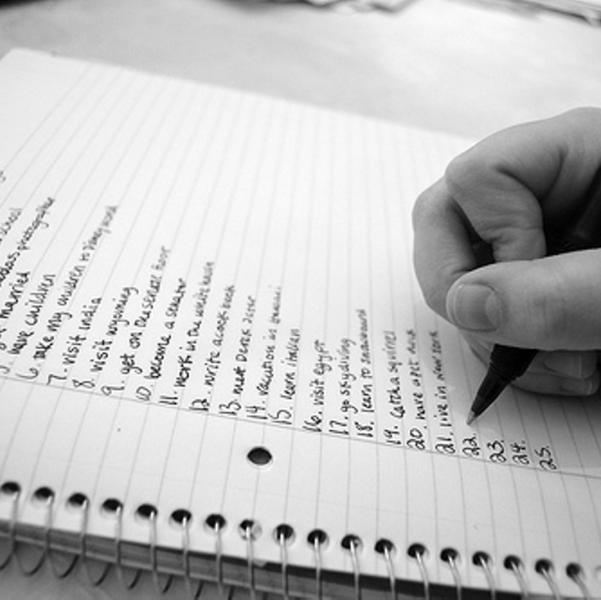 school
photographer
married
5. have children
6. take my children to disney world
7. visit India
8. visit wyoming
9. get on the senate floor
10. become a senator
11. work in the white house
12. write a cook book
13. meet Derek Jeter
14. vacation in
15. learn italian
16. visit egypt
17. go skydiving
18. learn to snowboard
19. catch a squirrel
20. have a pet
21. live in new york
22.
23.
24.
25.